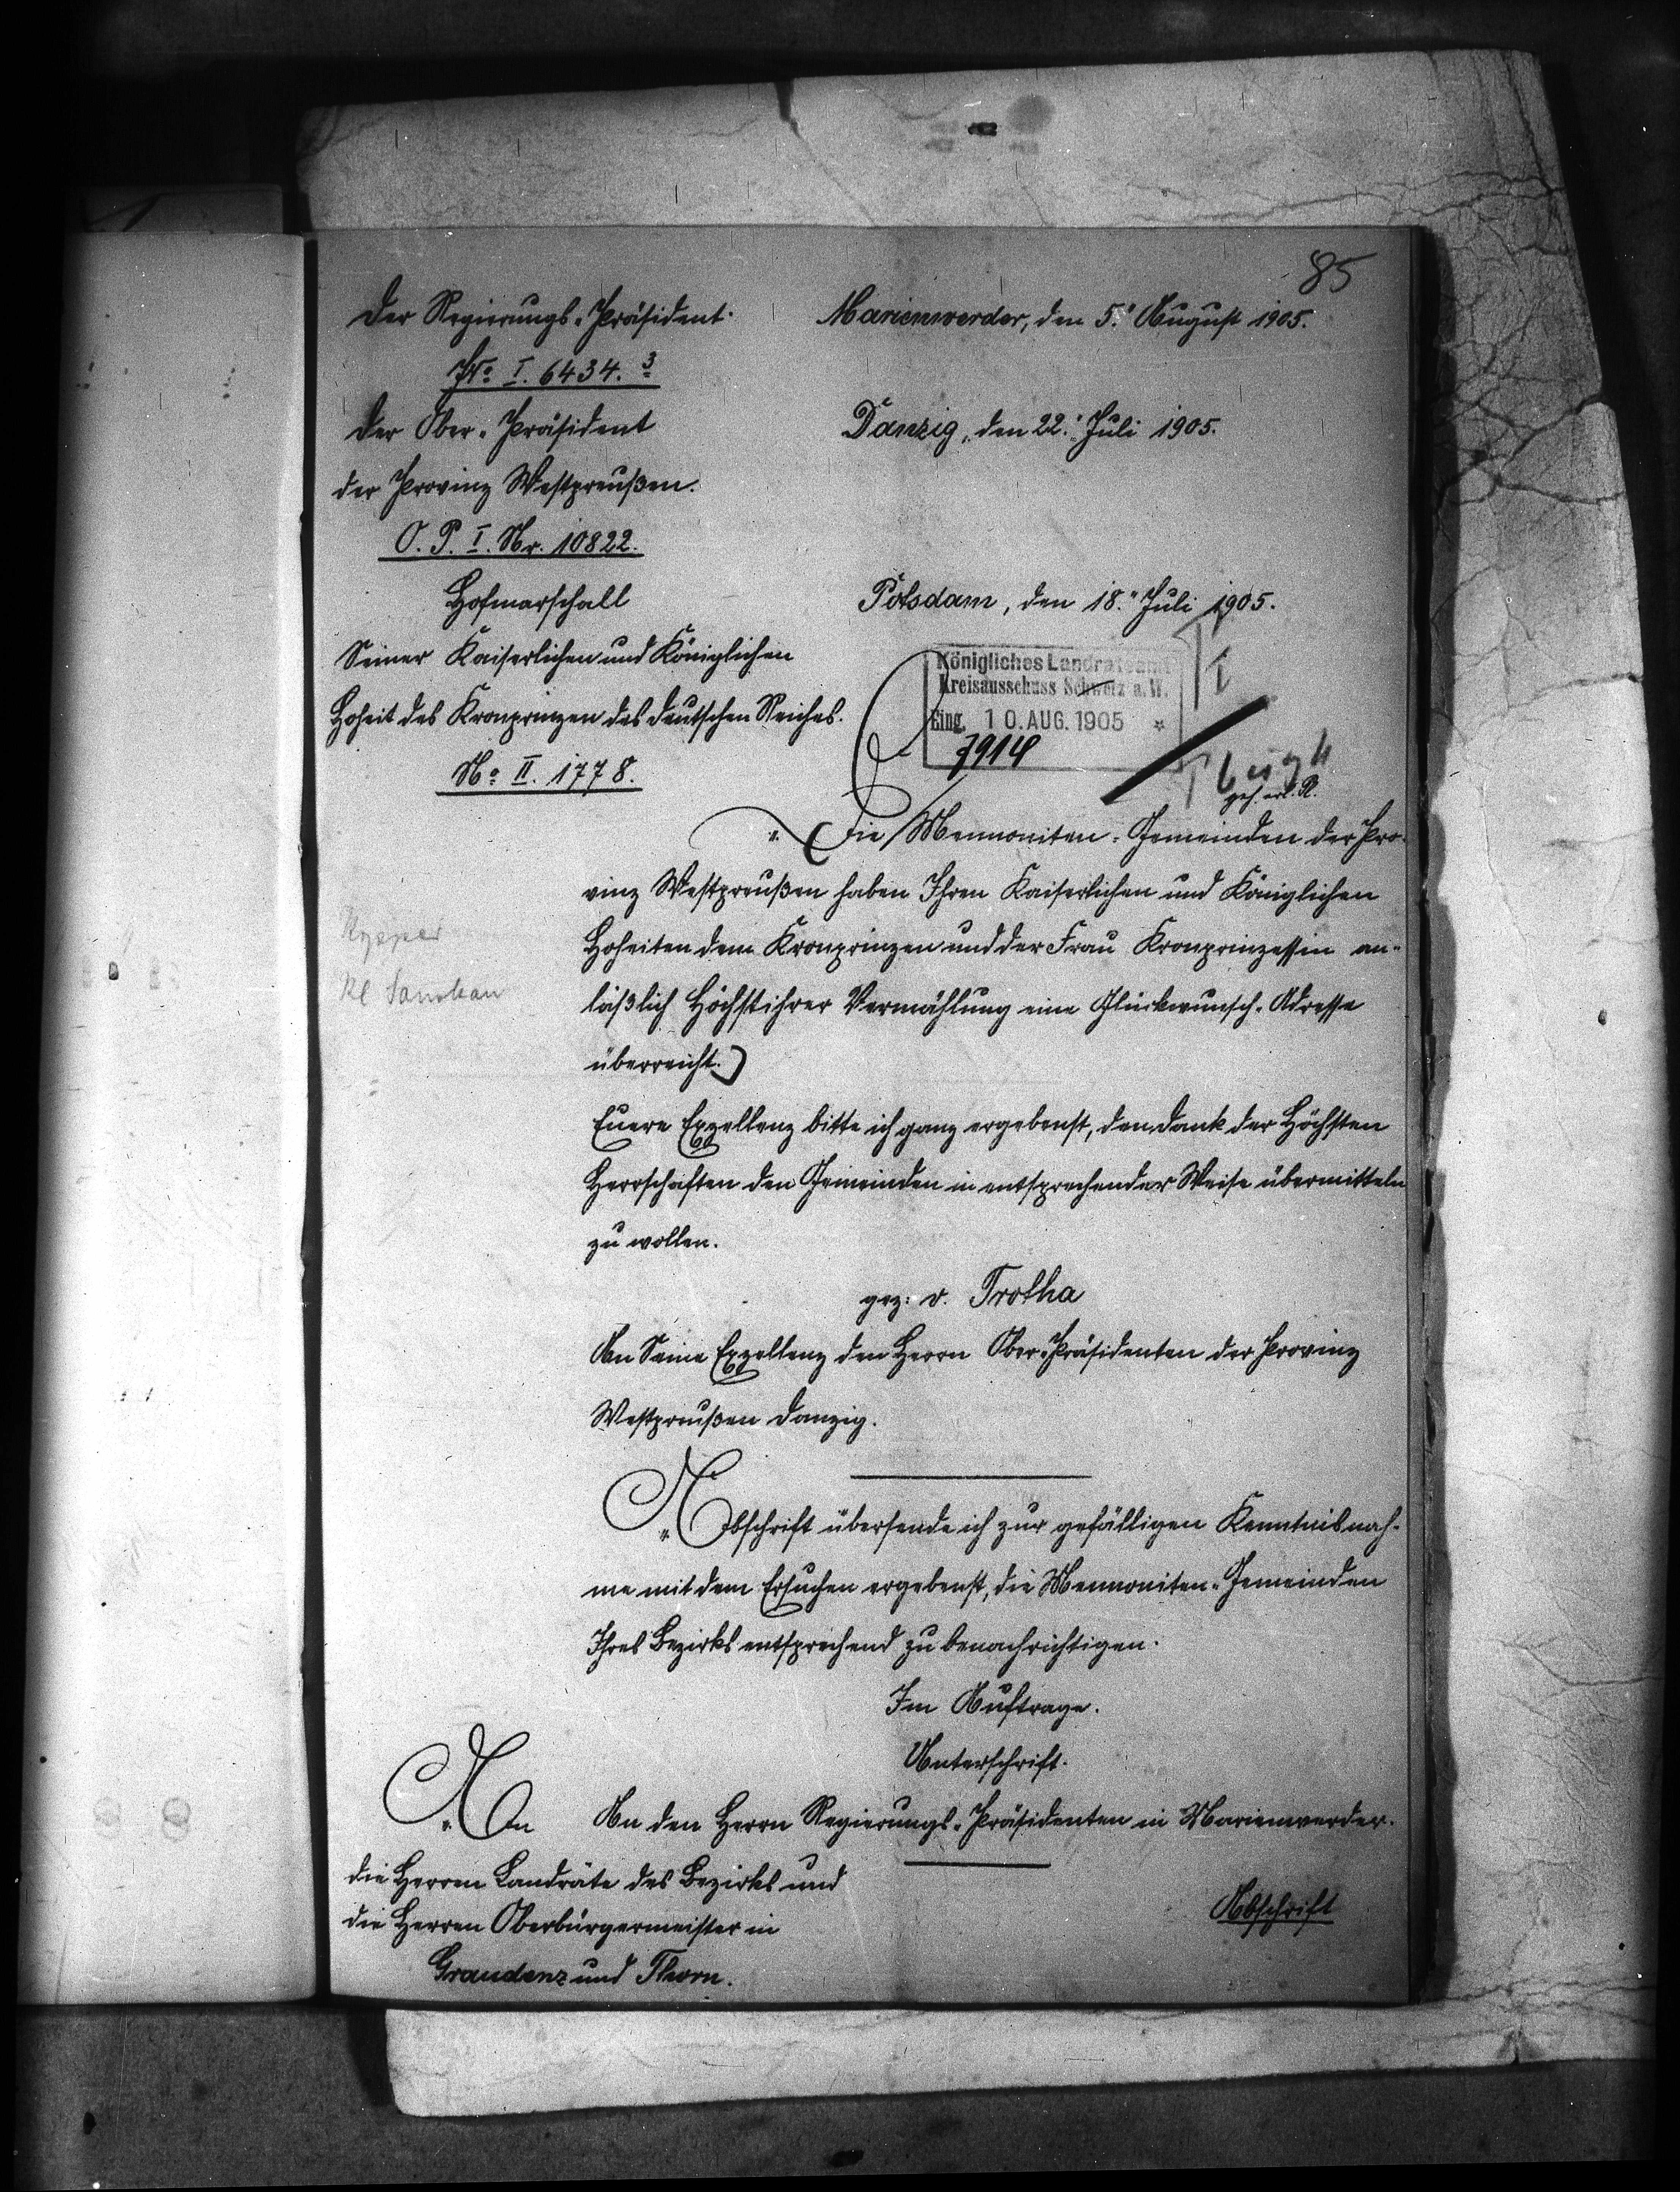 85
Der Regierungs-Präsident.
Marienwerder, den 5. August 1905.
No I. 6434. 3
Der Ober-Präsident
Danzig, den 22. Juli 1905.
der Provinz Westpreußen.
O. P. I. Nr. 10822.
Hofmarschall
Potsdam, den 18. Juli 1905.
Seiner Kaiserlichen und Königlichen
Hoheit des Kronprinzen des deutschen Reiches.
No II. 1778.
Königliches Landratsamt
Kreisausschuss Schwetz a. W.
Eing. 10. AUG. 1905 *
7914
I
Die Mennoniten-Gemeinden der Pro-
vinz Westpreußen haben Ihren Kaiserlichen und Königlichen
Hoheiten dem Kronprinzen und der Frau Kronprinzessin an-
läßlich Höchstihrer Vermählung eine Glückwunsch-Adresse
überreicht.
Euere Exzellenz bitte ich ganz ergebenst, den Dank der Höchsten
Herrschaften den Gemeinden in entsprechender Weise übermitteln
zu wollen.
gez: v. Trotha
An Seine Exzellenz den Herrn Ober-Präsidenten der Provinz
Westpreußen Danzig.
Abschrift übersende ich zur gefälligen Kenntnisnah-
me mit dem Ersuchen ergebenst, die Mennoniten-Gemeinden
Ihres Bezirks entsprechend zu benachrichtigen.
Im Auftrage.
Unterschrift.
An den Herrn Regierungs-Präsidenten in Marienwerder.
An
die Herren Landräte des Bezirks und
die Herren Oberbürgermeister in
Graudenz und Thorn.
Abschrift